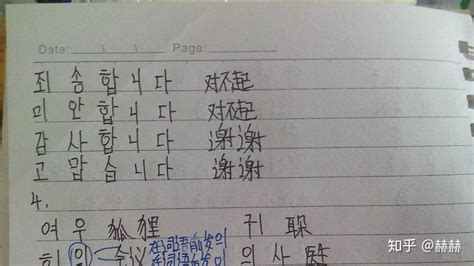 Date: Page:
죄송합니다 对不起
미안합니다 对不起
감사합니다 谢谢
고맙습니다 谢谢
4.
여우 狐狸 귀 躲
회의 会议 在词语前发의 의사 医
知乎 @赫赫